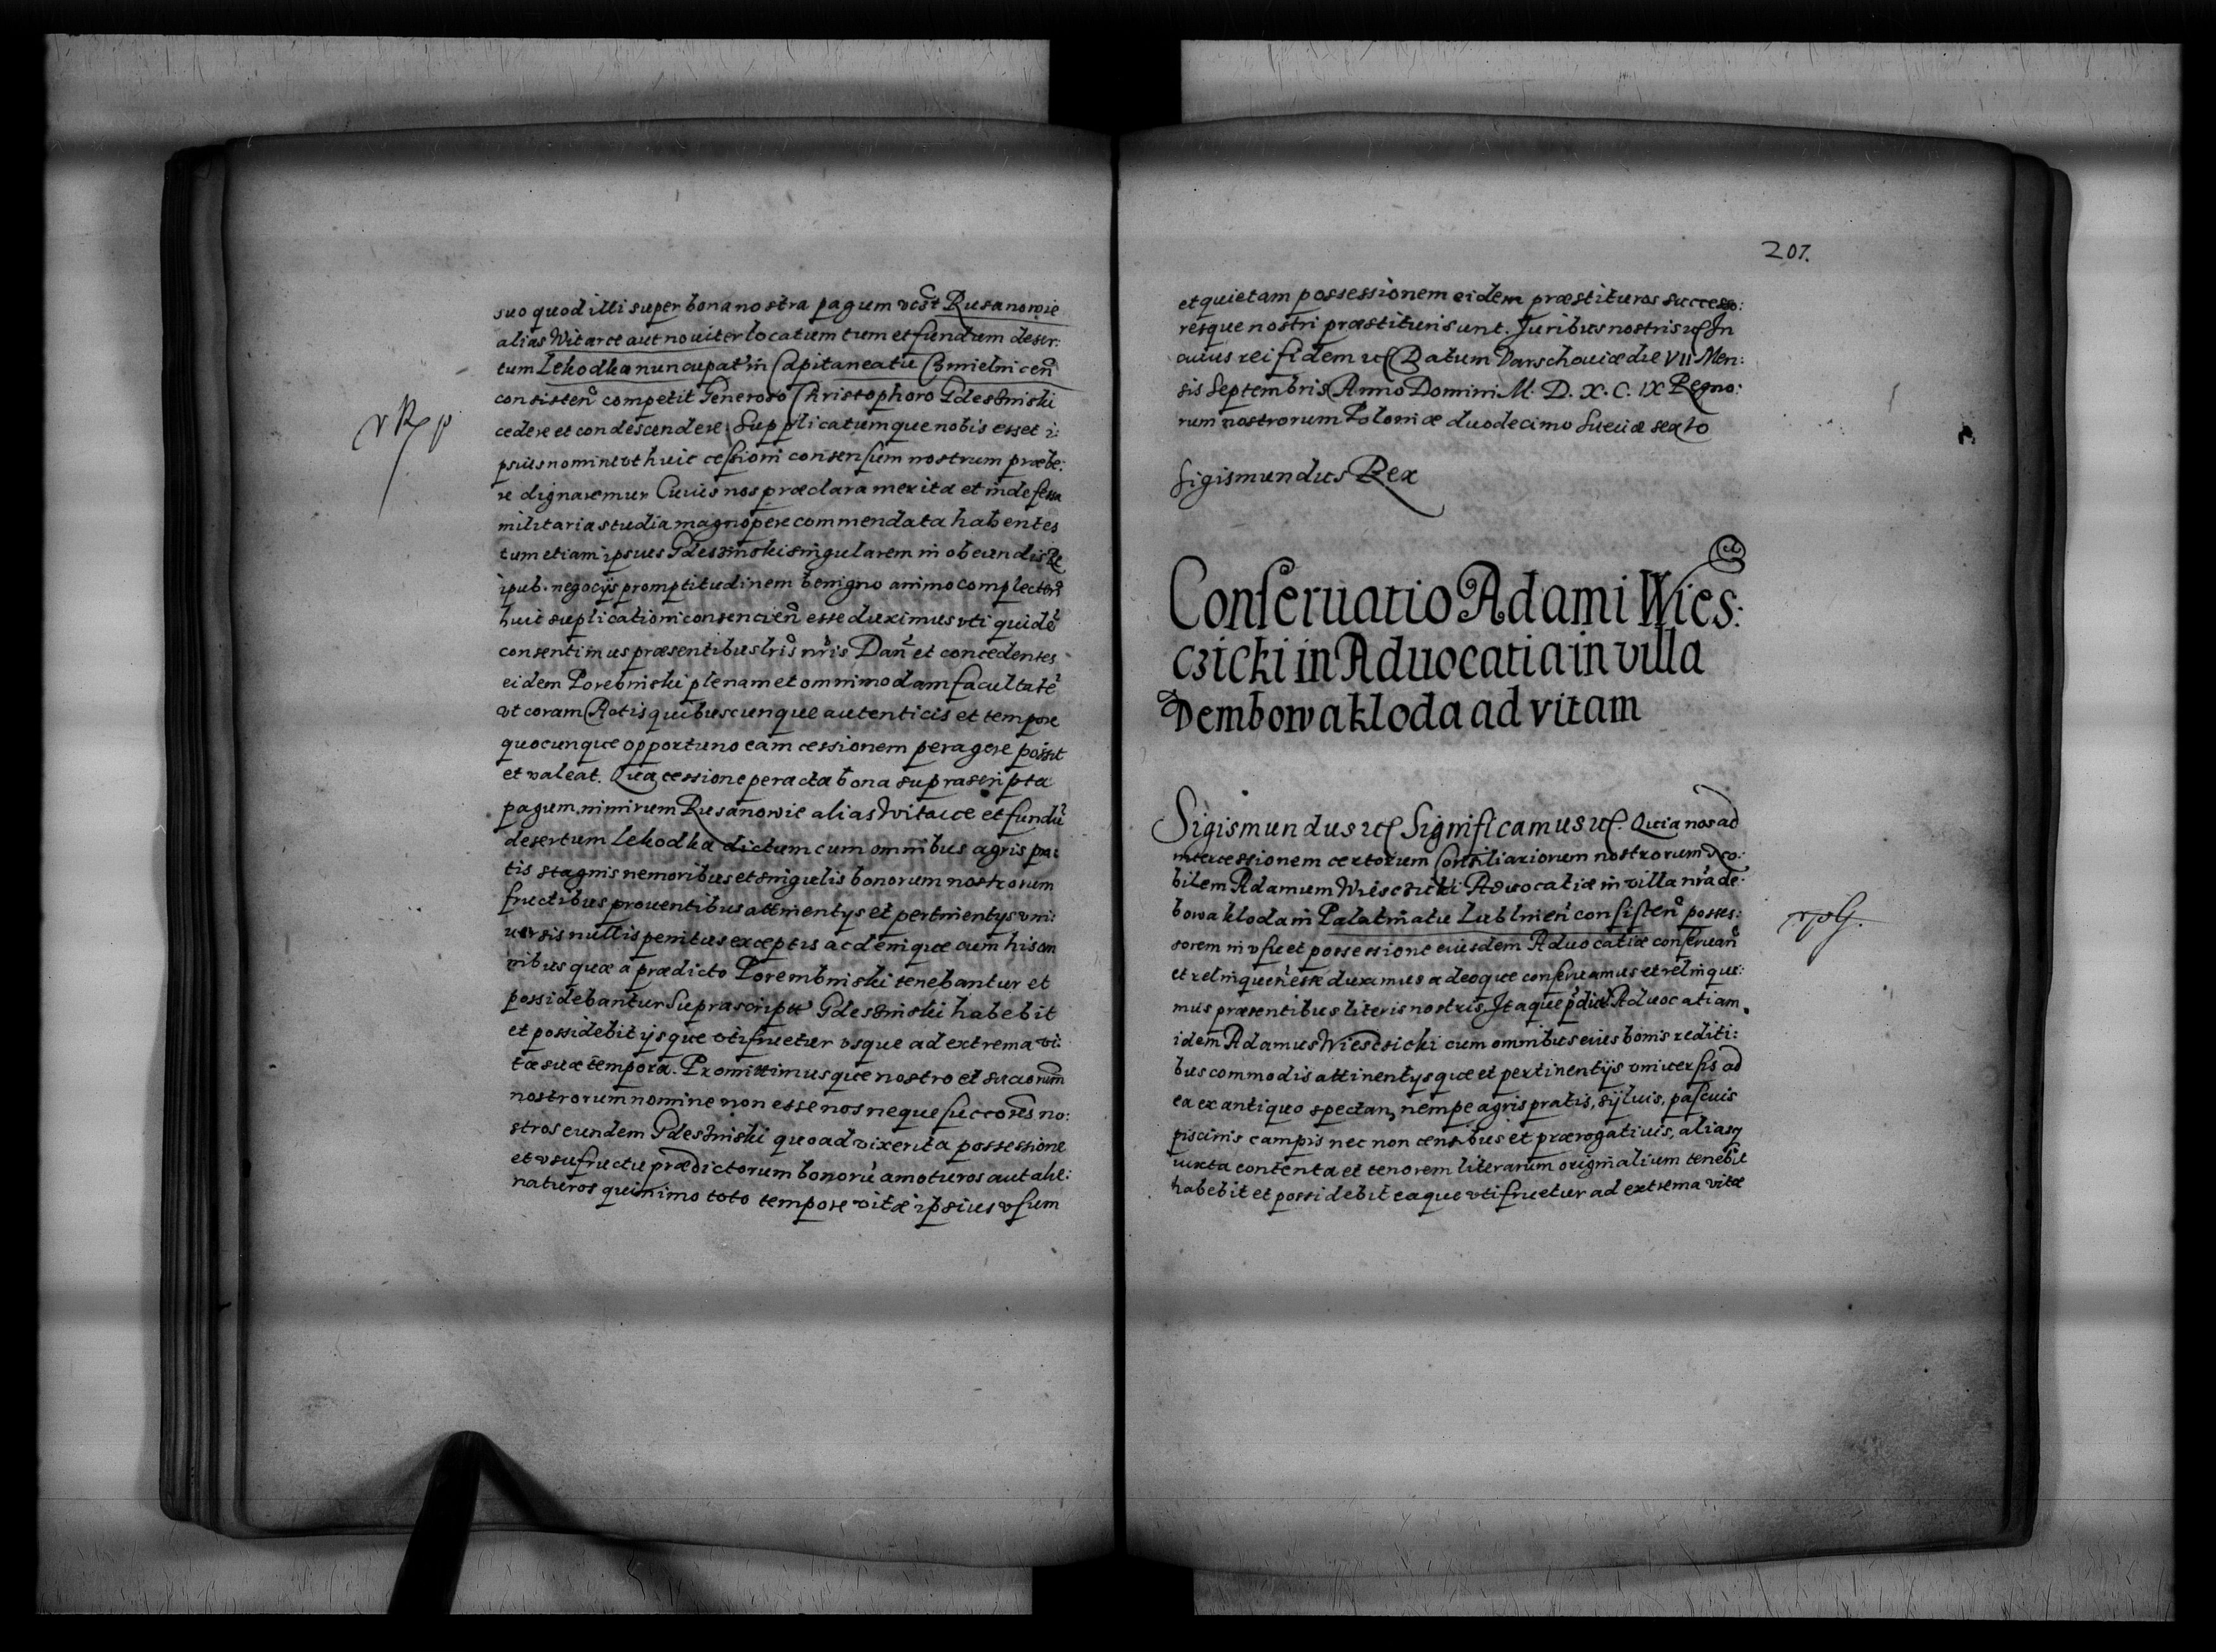 suo quod illi super bona nostra pagum vcst Rusanowie
alias Witarce aut nouiter locatum tum et fundum deser:
tum Lehodka nuncupat in Capitaneatu Chmielnicen
consisten competit Generoso Christophoro Gdeszinski
cedere et condescendere Supplicatumque nobis esset i:
psius nomine vt huic cessioni consensum nostrum præbe:
re dignaremur Cuius nos præclara merita et indefessa
militaria studia magnopere commendata habentes
tum etiam ipsius Gdeszinski singularem in obeundis Re
ipub. negocijs promptitudinem benigno animo complecten
huic suplicationi consencien esse duximus vti quidē
consentimus præsentibus lris nris Dan et concedentes
eidem Porebinski plenam et omnimodam facultatē
vt coram Actis quibuscunque autenticis et tempore
quocunque opportuno eam cessionem peragere possit
et valeat. Qua cessione peracta bona suprascripta
pagum nimirum Rusanowie alias Witarce et fundū
desertum Lehodka dictum cum omnibus agris pra:
tis stagnis nemoribus et singulis bonorum nostrorum
fructibus prouentibus attinentijs et pertinentijs vni:
uersis nullis penitus exceptis ac denique cum his om
nibus quæ a prædicto Porembinski tenebantur et
possidebantur Suprascript Gdeszinski habebit
et possidebit ijsque vti fruetur vsque ad extrema vi:
tæ suæ tempora. Promittimusque nostro et succorum
nostrorum nomine non esse nos neque succores no:
stros eundem Gdeszinski quoad vixerit a possessione
et vsufructu prædictorum bonorū amoturos aut alie:
naturos quinimo toto tempore vitæ ipsius vsum
201.
et quietam possessionem eidem præstituros successo:
resque nostri præstituri sunt. Juribus nostris etc In
cuius rei fidem etc Datum Varschouiæ die VII Men:
sis Septembris Anno Domini M. D. X. C. IX Regno:
rum nostrorum Poloniæ duodecimo Sueciæ sexto
Sigismundus Rex
Conseruatio Adami Wies:
czicki in Aduocatia in villa
Dembowakloda ad vitam
Sigismundus etc Significamus etc. Quia nos ad
intercessionem certorum Consiliariorum nostrorum No:
bilem Adamum Wiesczicki Aduocatiæ in villa nra de:
bowakloda in Palatinatu Lublinen consisten posses:
sorem in vsu et possessione eiusdem Aduocatiæ conseruan
et relinquen esse duximus adeoque conseruamus et relinque:
mus præsentibus literis nostris. Itaque pdict Aduocatiam
idem Adamus Wiesczicki cum omnibus eius bonis rediti:
bus commodis attinentijsque et pertinentijs vniuersis ad
ea ex antiquo spectan, nempe agris pratis, syluis, pascuis
piscinis campis nec non censibus et prærogatiuis, aliasq
iuxta contenta et tenorem literarum originalium tenebit
habebit et possidebit eaque vti fruetur ad extrema vitæ